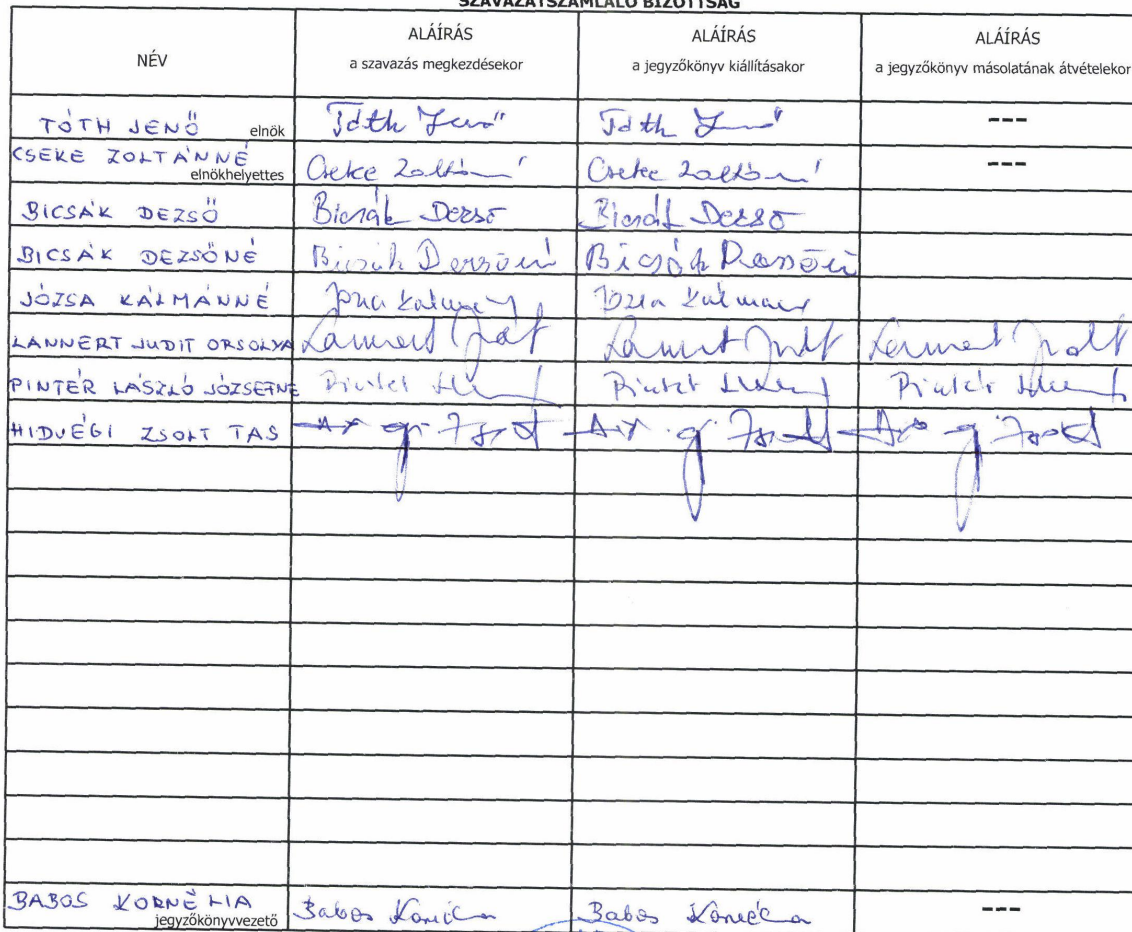 SZAVAZATSZÁMLÁLÓ BIZOTTSÁG
NÉV
ALÁÍRÁS
a szavazás megkezdésekor
ALÁÍRÁS
a jegyzőkönyv kiállításakor
ALÁÍRÁS
a jegyzőkönyv másolatának átvételekor
TÓTH JENŐ elnök Tóth Jenő Tóth Jenő ---
CSEKE ZOLTÁNNÉ
elnökhelyettes Cseke Zoltánné Cseke Zoltánné ---
BICSÁK DEZSŐ Bicsák Dezső Bicsák Dezső
BICSÁK DEZSŐNÉ Bicsák Dezsőné Bicsák Dezsőné
JÓZSA KÁLMÁNNÉ Józsa Kálmánné Józsa Kálmánné
LANNERT JUDIT ORSOLYA Lannert Judit Lannert Judit Lannert Judit
PINTÉR LÁSZLÓ JÓZSEFNÉ Pintér Pintér Pintér
HIDVÉGI ZSOLT TAS
BABOS KORNÉLIA
jegyzőkönyvvezető Babos Kornélia Babos Kornélia ---